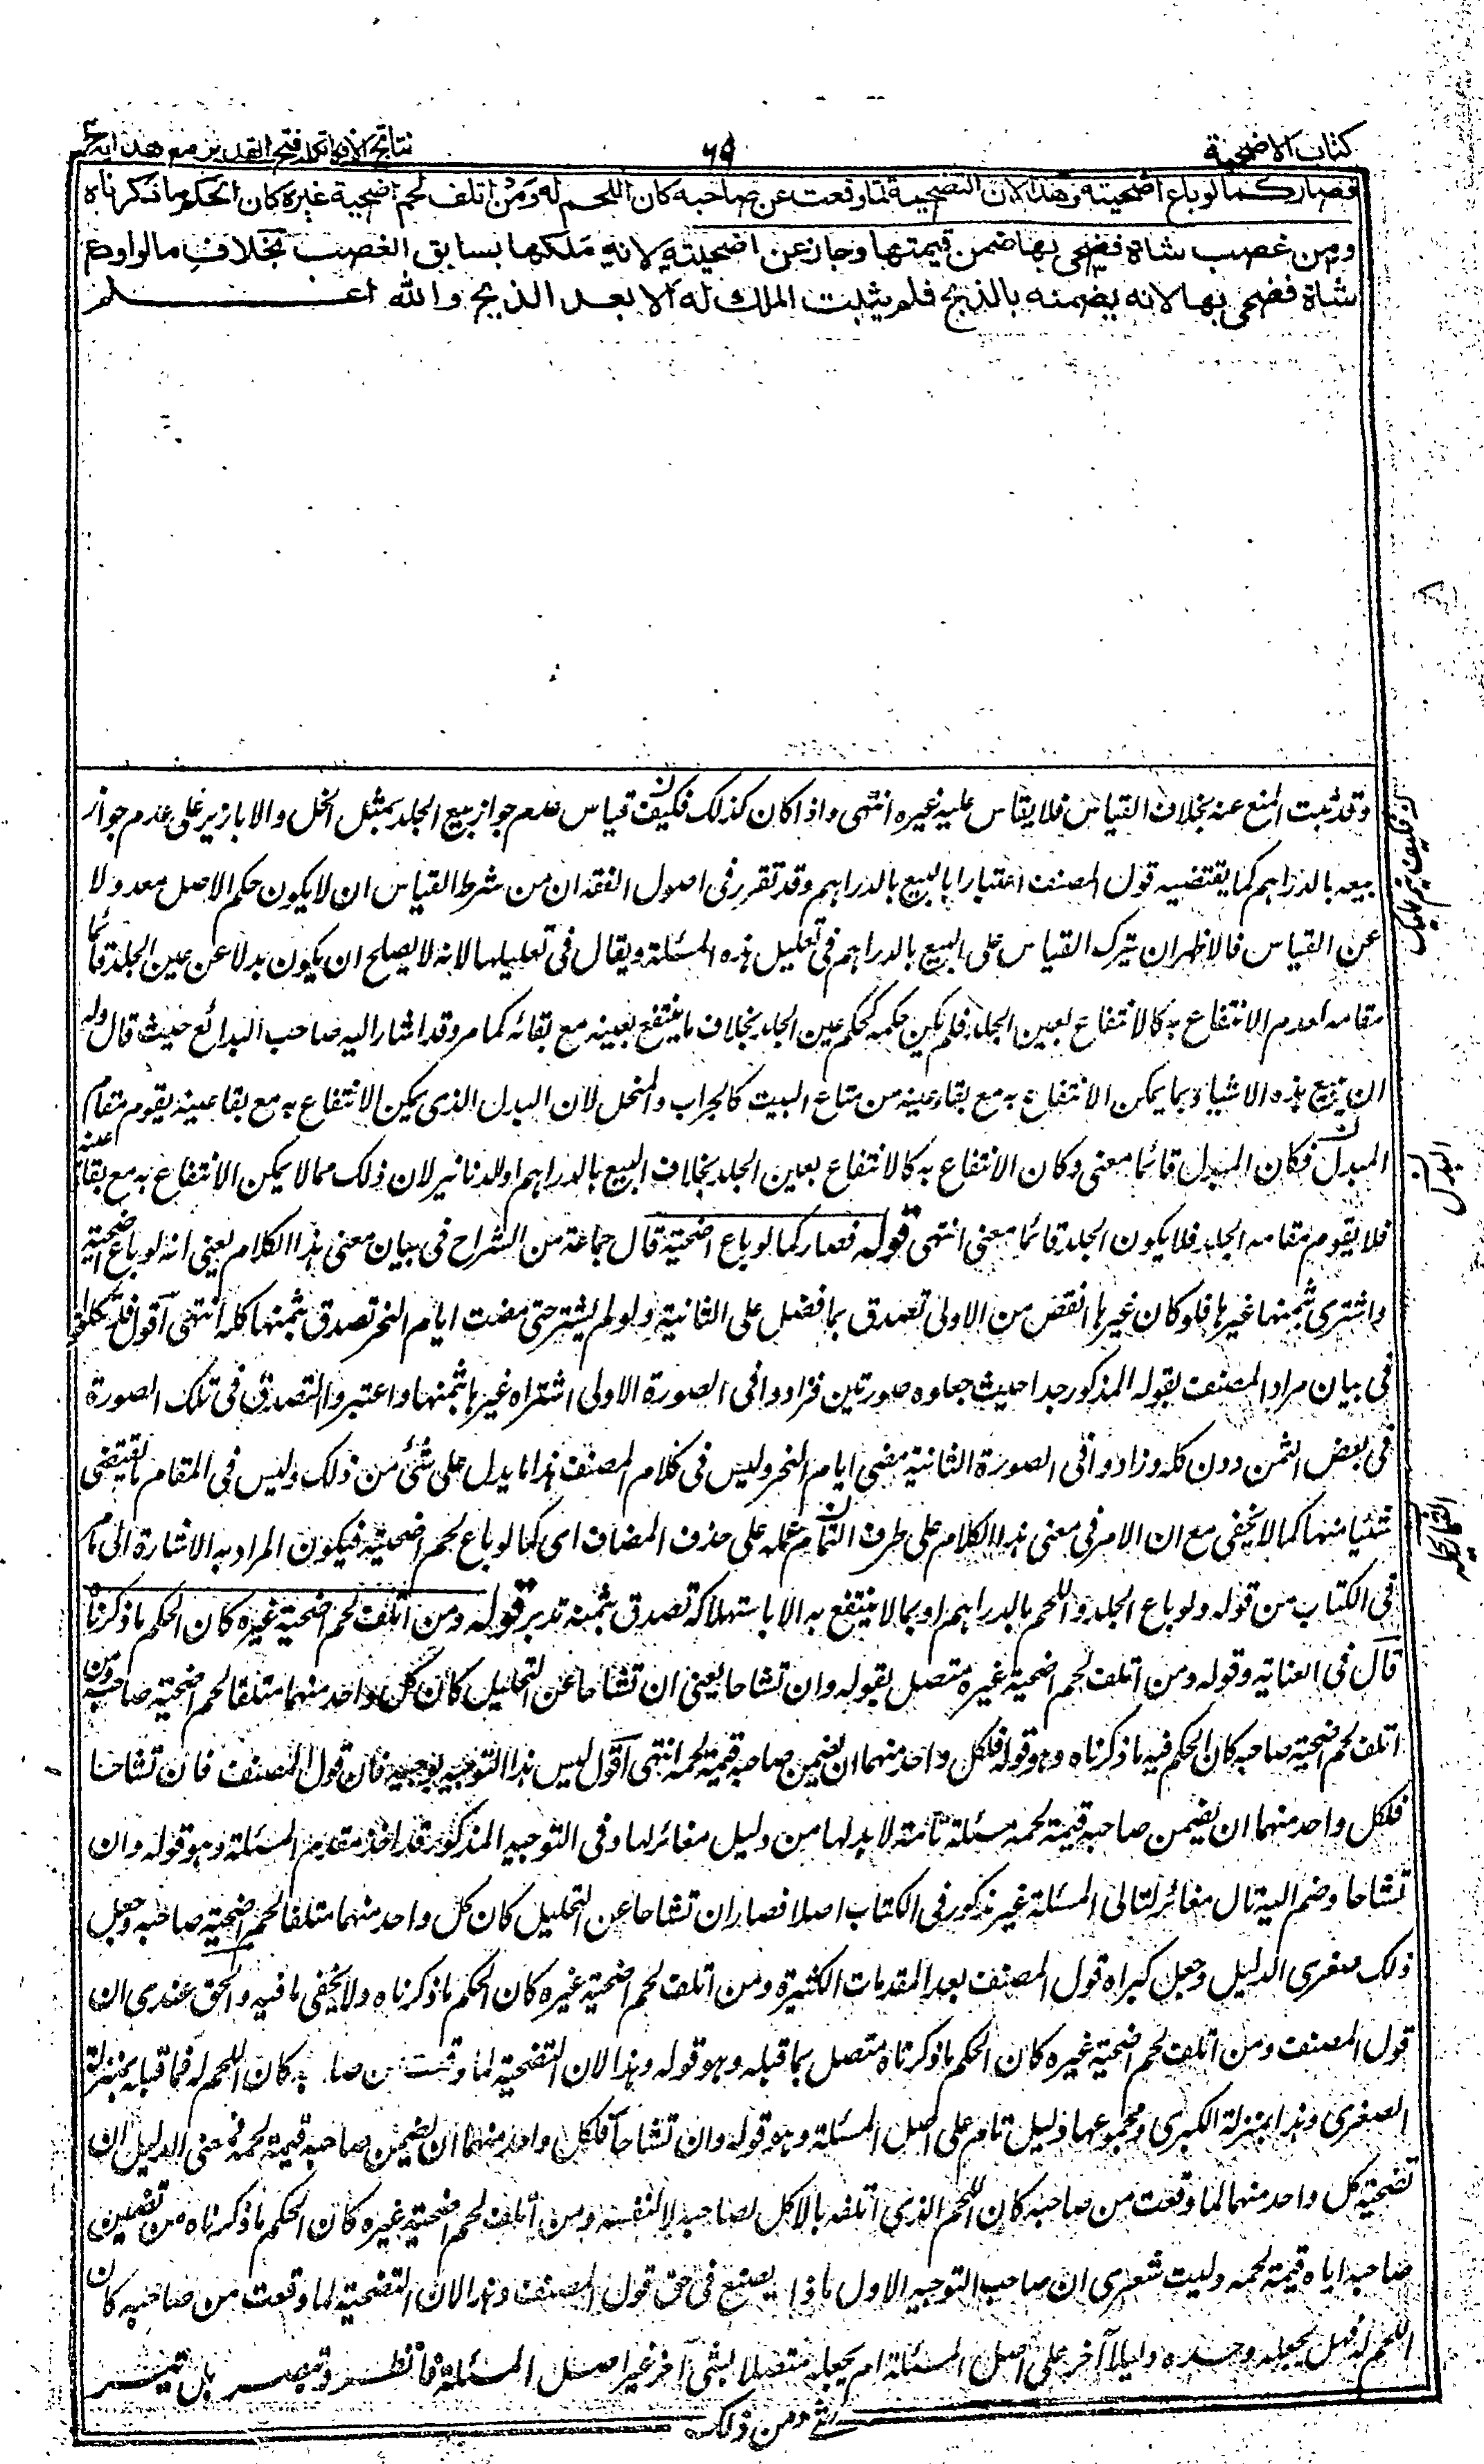 كتاب الاضحية
٦٩
نتائج الافكار تكملة فتح القدير مع هداية ج
فصار كما لو باع اضحيته وهذا لان التضحية لما وقعت عن صاحبه كان اللحم له ومن اتلف لحم اضحية غيره كان الحكم ما ذكرناه
ومن غصب شاة فضحى بها ضمن قيمتها وجاز عن اضحيته لانه ملكها بسابق الغصب بخلاف ما لو اودع
شاة فضحى بها لانه يضمنه بالذبح فلم يثبت الملك له الا بعد الذبح والله اعلم
وقد ثبت المنع عنه بخلاف القياس فلا يقاس عليه غيره انتهى واذا كان كذلك فكيف قياس عدم جواز بيع الجلد بمثل الخل والابازير على عدم جواز
بيعه بالدراهم كما يقتضيه قول المصنف اعتبارا بالبيع بالدراهم وقد تقرر فى اصول الفقه ان من شرط القياس ان لا يكون حكم الاصل معدولا
عن القياس فالاظهر ان يترك القياس على البيع بالدراهم فى تعليل هذه المسئلة ويقال فى تعليلها لانه لا يصلح ان يكون بدلا عن عين الجلد قائما
مقامه لعدم الانتفاع به كالانتفاع بعين الجلد فلم يكن حكمه كحكم عين الجلد بخلاف ما ينتفع بعينه مع بقائه كما مر وقد اشار اليه صاحب البدائع حيث قال وله
ان يبيع هذه الاشياء بما يمكن الانتفاع به مع بقاء عينه من متاع البيت كالجراب والمنخل لان البدل الذى يمكن الانتفاع به مع بقا عينه يقوم مقام
المبدل فكان المبدل قائما معنى وكان الانتفاع به كالانتفاع بعين الجلد بخلاف البيع بالدراهم والدنانير لان ذلك مما لا يمكن الانتفاع به مع بقاء عينه
فلا يقوم مقامه الجلد فلا يكون الجلد قائما معنى انتهى قوله فصار كما لو باع اضحيته قال جماعة من الشراح فى بيان معنى هذا الكلام يعنى انه لو باع اضحيته
واشترى بثمنها غيرها فلو كان غيرها انقص من الاولى تصدق بما فضل على الثانية ولو لم يشتر حتى مضت ايام النحر تصدق بثمنها كله انتهى اقول
فى بيان مراد المصنف بقوله المذكور جدا حيث جعلوه صورتين فزادوا فى الصورة الاولى اشتراء غيرها بثمنها واعتبروا التصدق فى تلك الصورة
فى بعض الثمن دون كله وزادوا فى الصورة الثانية مضى ايام النحر وليس فى كلام المصنف هذا ما يدل على شئ من ذلك وليس فى المقام ما يقتضى
شيئا منها كما لا يخفى مع ان الامر فى معنى هذا الكلام على طرف التمام حمله على حذف المضاف اى كما لو باع لحم اضحيته فيكون المراد به الاشارة الى ما مر
فى الكتاب من قوله ولو باع الجلد واللحم بالدراهم او بما لا ينتفع به الا باستهلاكه تصدق بثمنه تدبر قوله ومن اتلف لحم اضحية غيره كان الحكم ما ذكرناه
قال فى العناية وقوله ومن اتلف لحم اضحية غيره متصل بقوله وان تشاحا يعنى ان تشاحا عن التحليل كان كل واحد منهما متلفا لحم اضحية صاحبه ومن
اتلف لحم اضحية صاحبه كان الحكم فيه ما ذكرناه وهو قوله فلكل واحد منهما ان يضمن صاحبه قيمة لحمه انتهى اقول ليس هذا التوجيه بوجيه فان قول المصنف فان تشاحا
فلكل واحد منهما ان يضمن صاحبه قيمة لحمه مسئلة تامة لا بد لها من دليل مغائر لها وفى التوجيه المذكور قد اخذ مقدم المسئلة وهو قوله وان
تشاحا وضم اليه تال مغائر لتالى المسئلة غير مذكور فى الكتاب اصلا فصار ان تشاحا عن التحليل كان كل واحد منهما متلفا لحم اضحية صاحبه وجعل
ذلك صغرى الدليل وجعل كبراه قول المصنف بعد المقدمات الكثيرة ومن اتلف لحم اضحية غيره كان الحكم ما ذكرناه ولا يخفى ما فيه والحق عندى ان
قول المصنف ومن اتلف لحم اضحية غيره كان الحكم ما ذكرناه متصل بما قبله وهو قوله وهذا لان التضحية لما وقعت من صا به كان اللحم له فما قبله بمنزلة
الصغرى وهذا بمنزلة الكبرى ومجموعها دليل تام على اصل المسئلة وهو قوله وان تشاحا فلكل واحد منهما ان يضمن صاحبه قيمة لحمه فمعنى الدليل ان
تضحية كل واحد منهما لما وقعت من صاحبه كان اللحم الذي اتلفه بالاكل لصاحبه لا لنفسه ومن اتلف لحم اضحية غيره كان الحكم ما ذكرناه من تضمين
صاحبه اياه قيمة لحمه وليت شعرى ان صاحب التوجيه الاول ماذا يصنع فى حق قول المصنف وهذا لان التضحية لما وقعت من صاحبه كان
اللحم له فهل يجعله وحده دليلا آخر على اصل المسئلة ام يجعله متصلا بشئ آخر غير اصل المسئلة فانظر وتبصر هل تيسر
شئ من ذلك